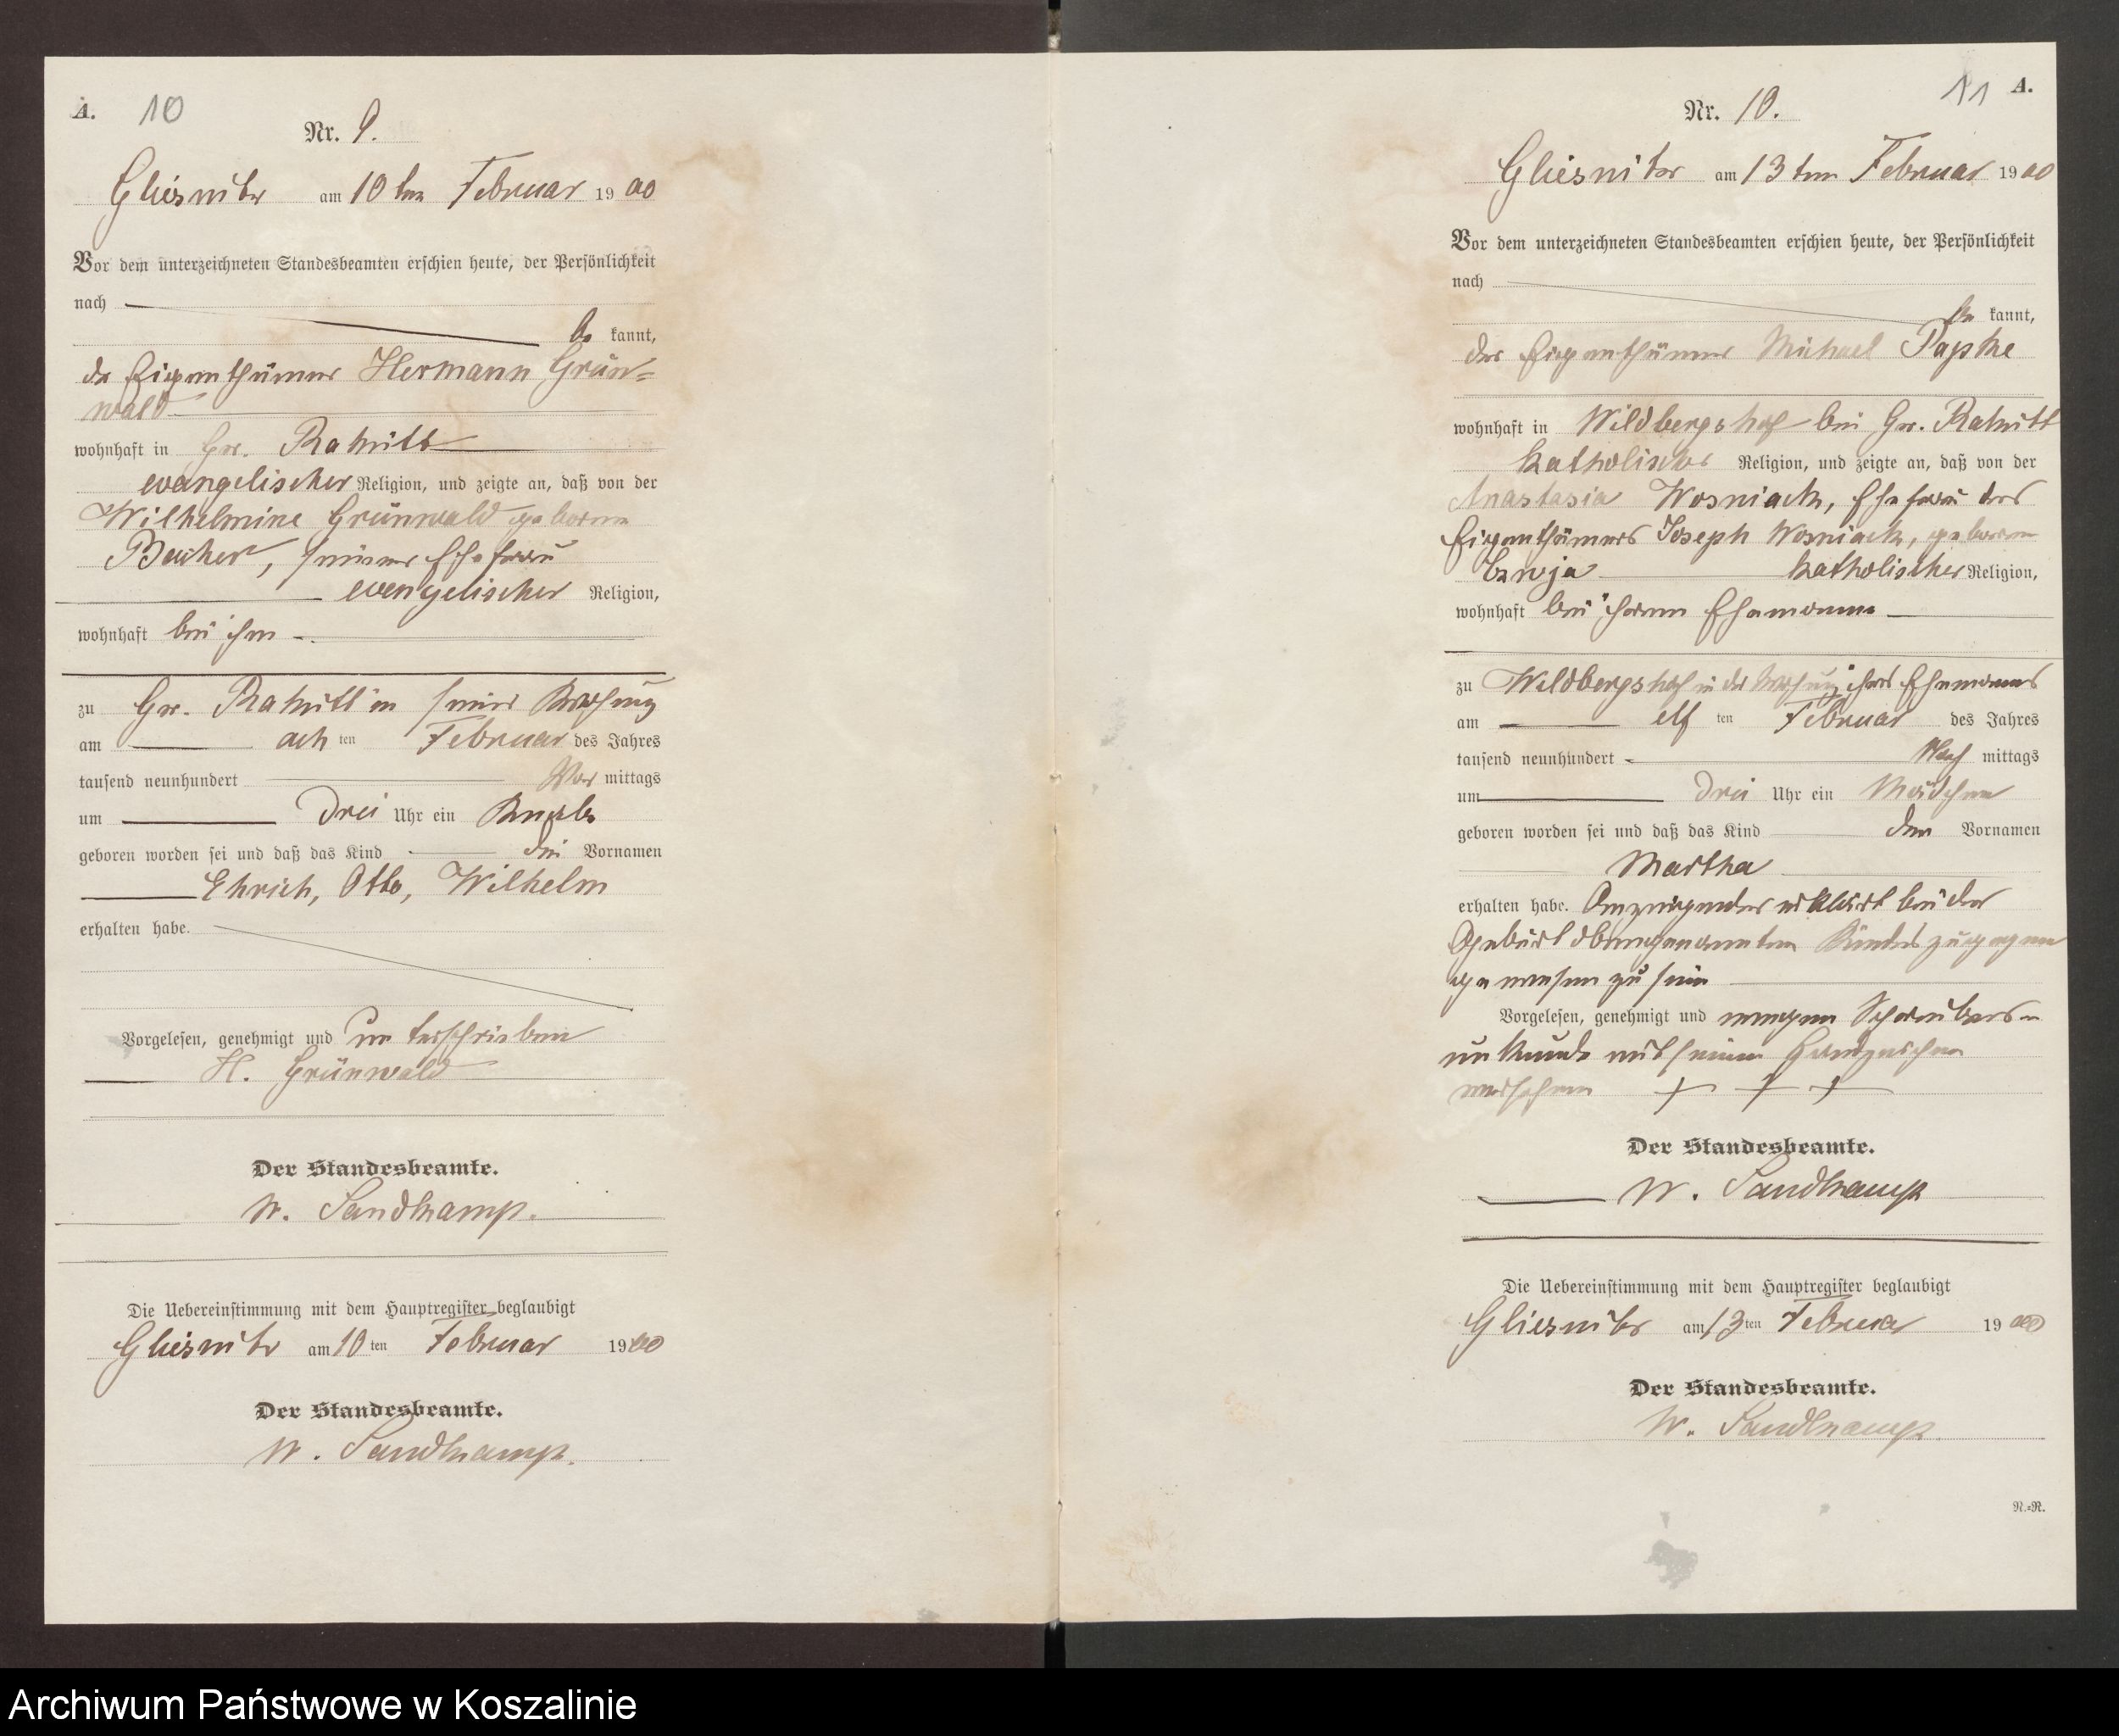 A. 10
Nr. 9.
Gliesnitz am 10ten Februar 1900
Vor dem unterzeichneten Standesbeamten erschien heute, der Persönlichkeit
nach
be kannt,
der Eigenthümer Hermann Grün=
wald
wohnhaft in Gr. Rakitt
evangelischer Religion, und zeigte an, daß von der
Wilhelmine Grünwald geborene
seiner Ehefrau
evangelischer Religion,
wohnhaft bei ihm
zu Gr. Rakitt in seiner Wohnung
am ach ten Februar des Jahres
tausend neunhundert Vor mittags
um Drei Uhr ein Knabe
geboren worden sei und daß das Kind die Vornamen
Ehrich, Otto, Wilhelm
erhalten habe.
Vorgelesen, genehmigt und unterschrieben
H. Grünwald
Der Standesbeamte.
W. Sandkamp.
Die Uebereinstimmung mit dem Hauptregister beglaubigt
Gliesnitz am 10 ten Februar 1900
Der Standesbeamte.
W. Sandkamp.
11 A.
Nr. 10.
Gliesnitz am 13ten Februar 1900
Vor dem unterzeichneten Standesbeamten erschien heute, der Persönlichkeit
nach
be kannt,
der Eigenthümer Michael Papke
wohnhaft in Wildbergshof bei Gr. Rakitt
katholischer Religion, und zeigte an, daß von der
Anastasia Wosniack, Ehefrau des
Eigenthümers Joseph Wosniack, geborene
katholischer Religion,
wohnhaft bei ihrem Ehemanne
zu Wildbergshof in der Wohnung ihres Ehemannes
am elf ten Februar des Jahres
tausend neunhundert Nach mittags
um drei Uhr ein Mädchen
geboren worden sei und daß das Kind den Vornamen
Martha
erhalten habe. Anzeigender erklärt bei der
Geburt obengenannten Kindes zugegen
gewesen zu sein
Vorgelesen, genehmigt und wegen Schreibens-
unkunde mit seinem Handzeichen
versehen + + +
Der Standesbeamte.
W. Sandkamp
Die Uebereinstimmung mit dem Hauptregister beglaubigt
Gliesnitz am 13 ten Februar 1900
Der Standesbeamte.
W. Sandkamp.
N.=R.
Archiwum Państwowe w Koszalinie